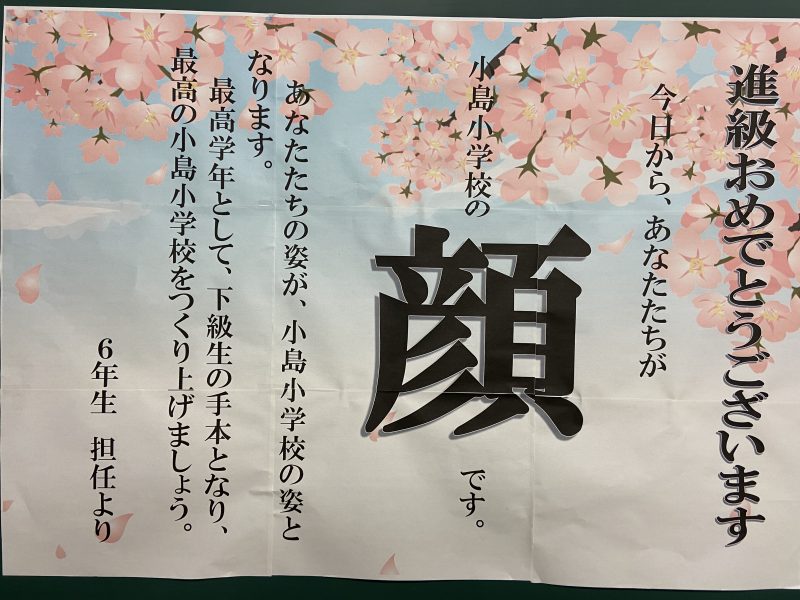 進級おめでとうございます
今日から、あなたたちが
小島小学校の
顔
です。
あなたたちの姿が、小島小学校の姿と
なります。
最高学年として、下級生の手本となり、
最高の小島小学校をつくり上げましょう。
6年生 担任より